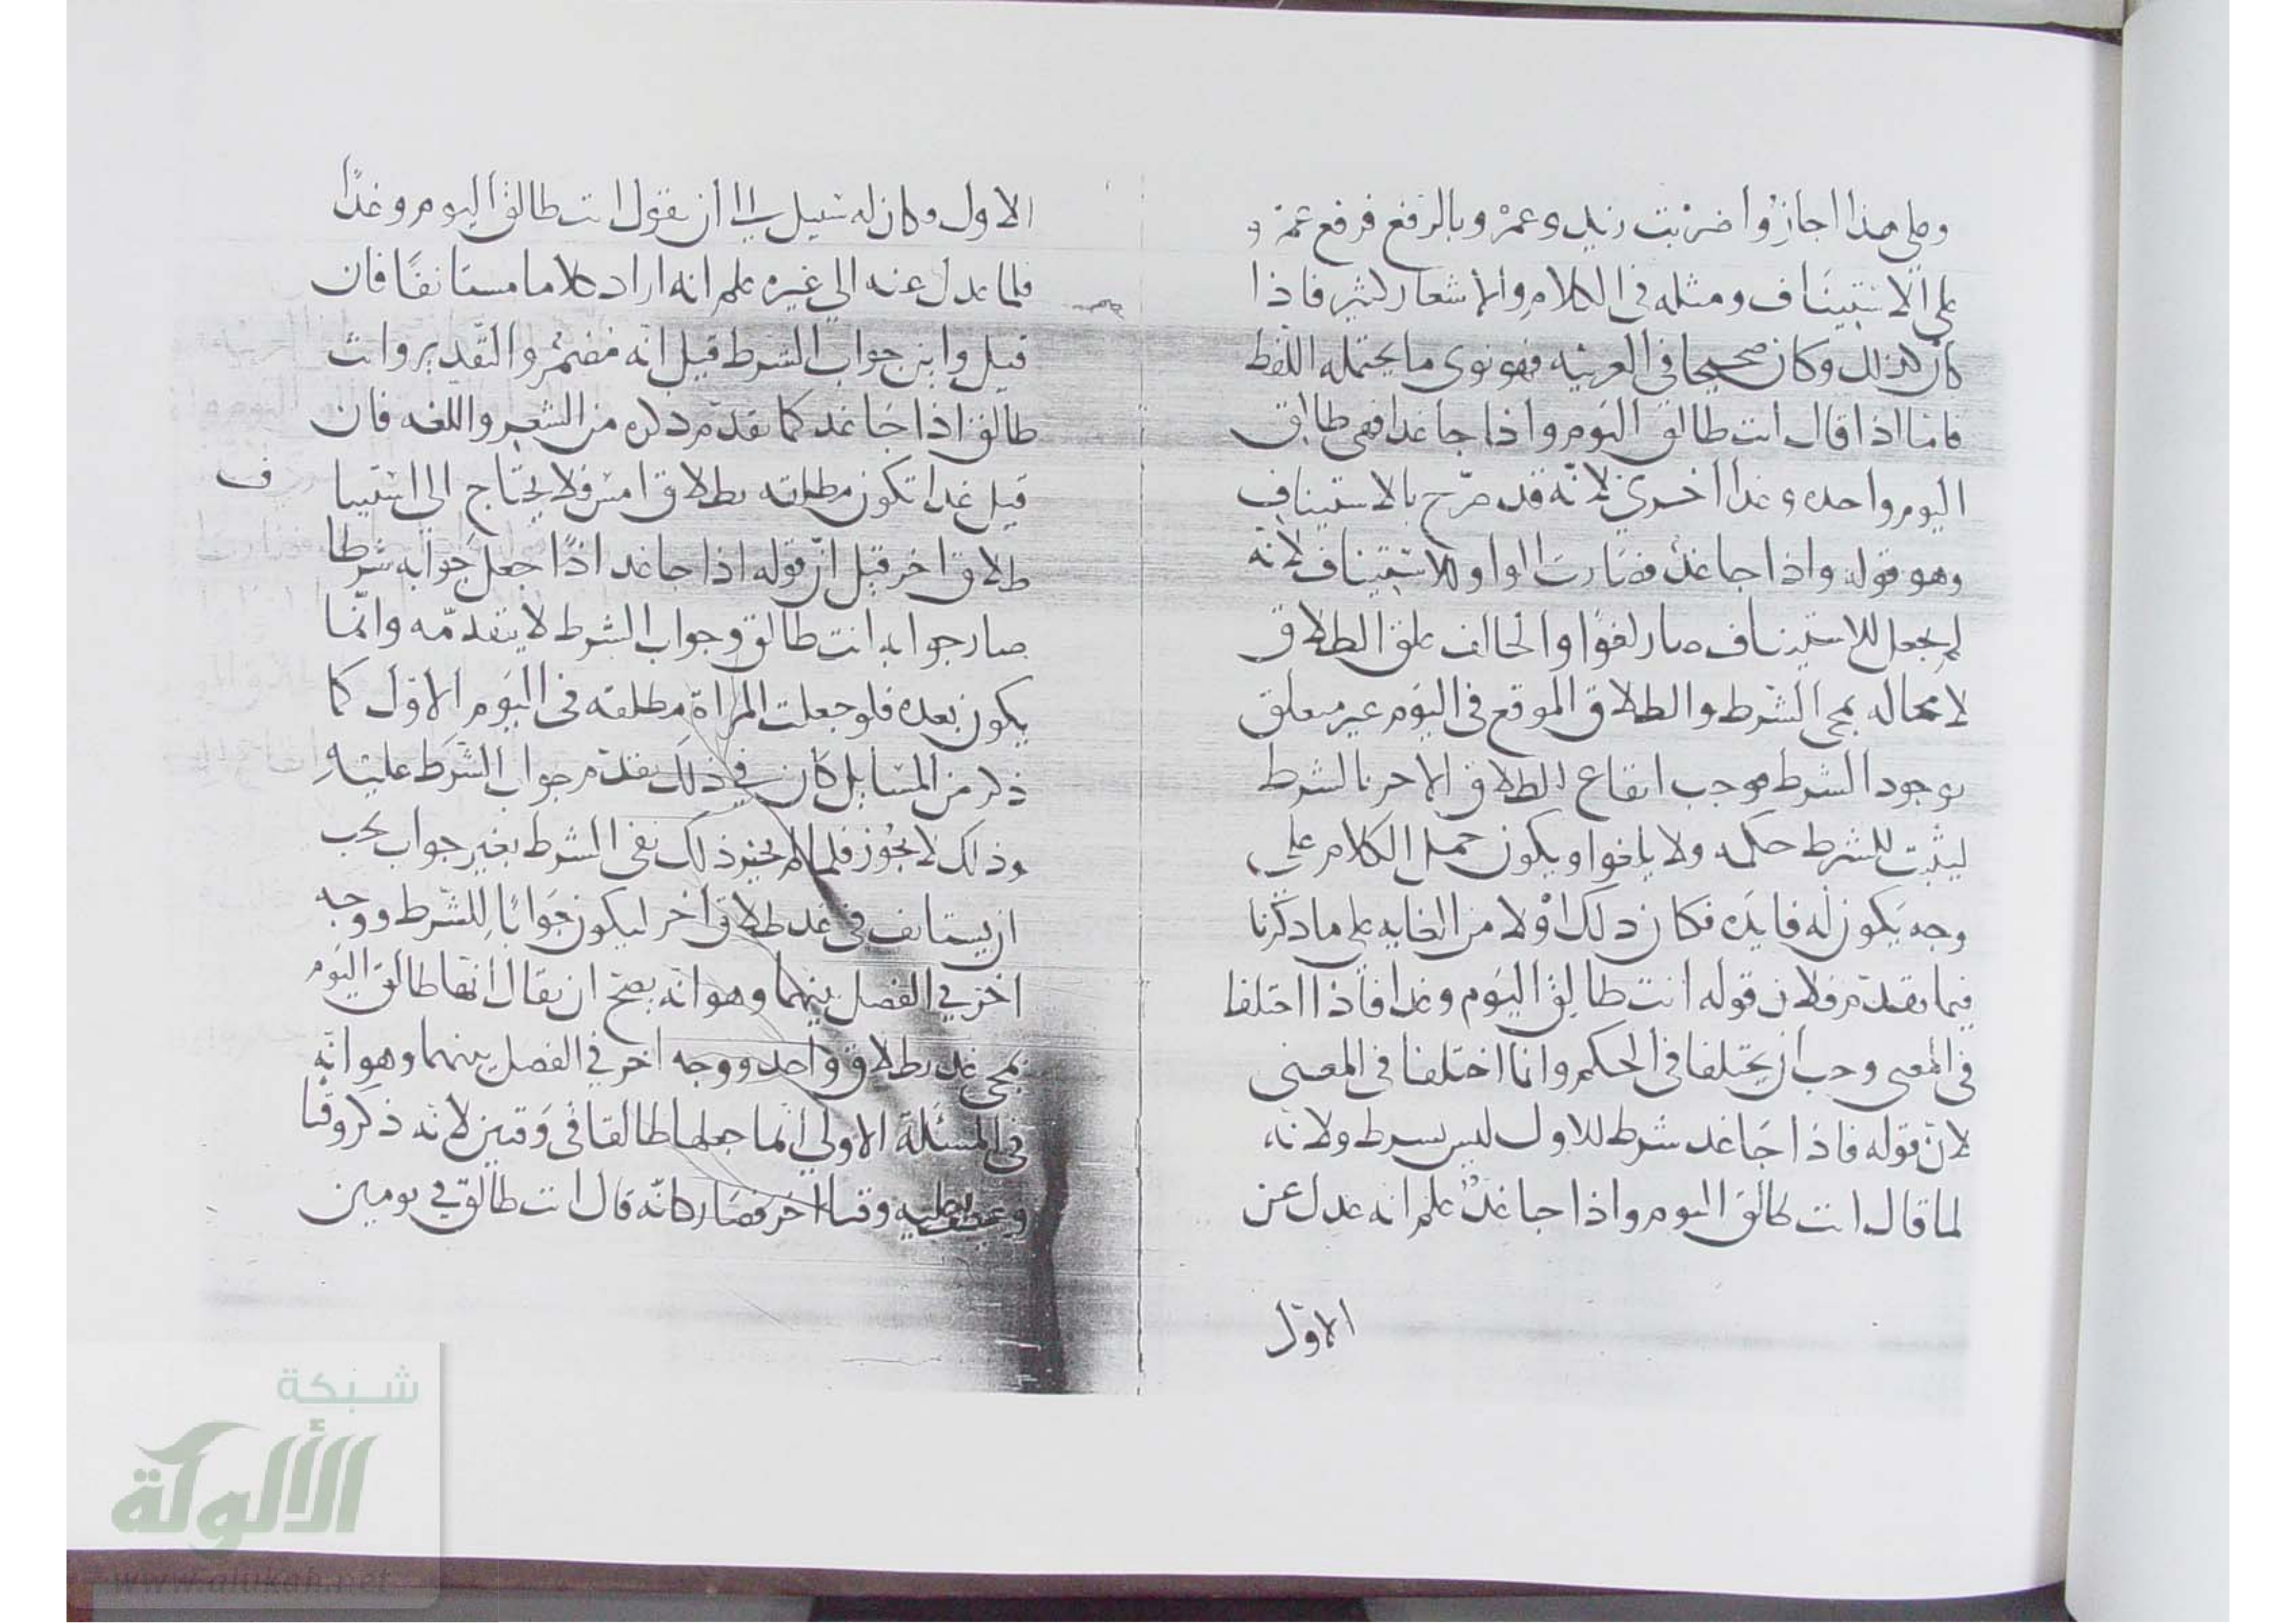 وعلى هذا اجازوا ضربت زيد وعمرو بالرفع فرفع عمرو
على الاستيناف ومثله في الكلام والاشعار كثير فاذا
كان كذلك وكان صحيحا في العربيه فهو نوى ما يحتمله اللفظ
فامّا اذا قال انت طالق اليوم واذا جا غدا فهى طالق
اليوم واحده وغدا اخرى لانّه قد صرّح بالاستيناف
وهو قوله واذا جا غدٌ فصارت الواو للاستيناف لانّه
لم يجعل للاستيناف صار لغوًا والحالف علق الطلاق
لا محاله بمجى الشرط والطلاق الموقع في اليوم غير معلق
بوجود الشرط فوجب ايقاع الطلاق الاخر بالشرط
ليثبت للشرط حكمه ولا يلغوا ويكون حمل الكلام على
وجه يكون له فايده فكان ذلك اولا من الغايه على ما ذكرنا
فيما تقدّم فلان قوله انت طالق اليوم وغدا فاذا اختلفا
في المعنى وجب ان يختلفا في الحكم وانّما اختلفا في المعنى
لانّ قوله فاذا جا غد شرط للاول ليس بسرط ولانه
لما قال انت طالق اليوم واذا جا غدٌ علم انه عدل عن
الاوّل
الاول وكان له سبيل الى ان يقول انت طالق اليوم وغدًا
فلما عدل عنه الى غيره علم انه اراد كلاما مستانفًا فان
قيل واين جواب الشرط قيل انّه مضمر والتقدير وانت
طالق اذا جا غد كما تقدّم ذكره من الشعر واللغه فان
قيل غدا تكون مطلقه بطلاق امس فلا يحتاج الى استينا ف
طلاق اخر قيل انّ قوله اذا جا غد اذًا جعل جوابه شرطا
صار جوابه انت طالق وجواب الشرط لا يتقدّمه وانّما
يكون بعده فلو جعلت المراة مطلقه في اليوم الاوّل كما
ذكر من المسايل كان في ذلك تقدّم جواب الشرط عليه
وذلك لا يجوز فلما لم يجز ذلك بقى الشرط بغير جواب يجب
ان يستانف في غد طلاق اخر ليكون جوابًا للشرط ووجه
اخر في الفصل بينهما وهو انّه يصحّ ان يقال انّها طالق اليوم
بمجى غد بطلاق واحد ووجه اخر في الفصل بينهما وهو انّه
في المسئلة الاولى انّما جعلها طالقا في وقتين لانّه ذكر وقتا
وعطف عليه وقتا اخر فصار كانّه قال انت طالق في يومين
شبكة
الألوكة
www.alukah.net